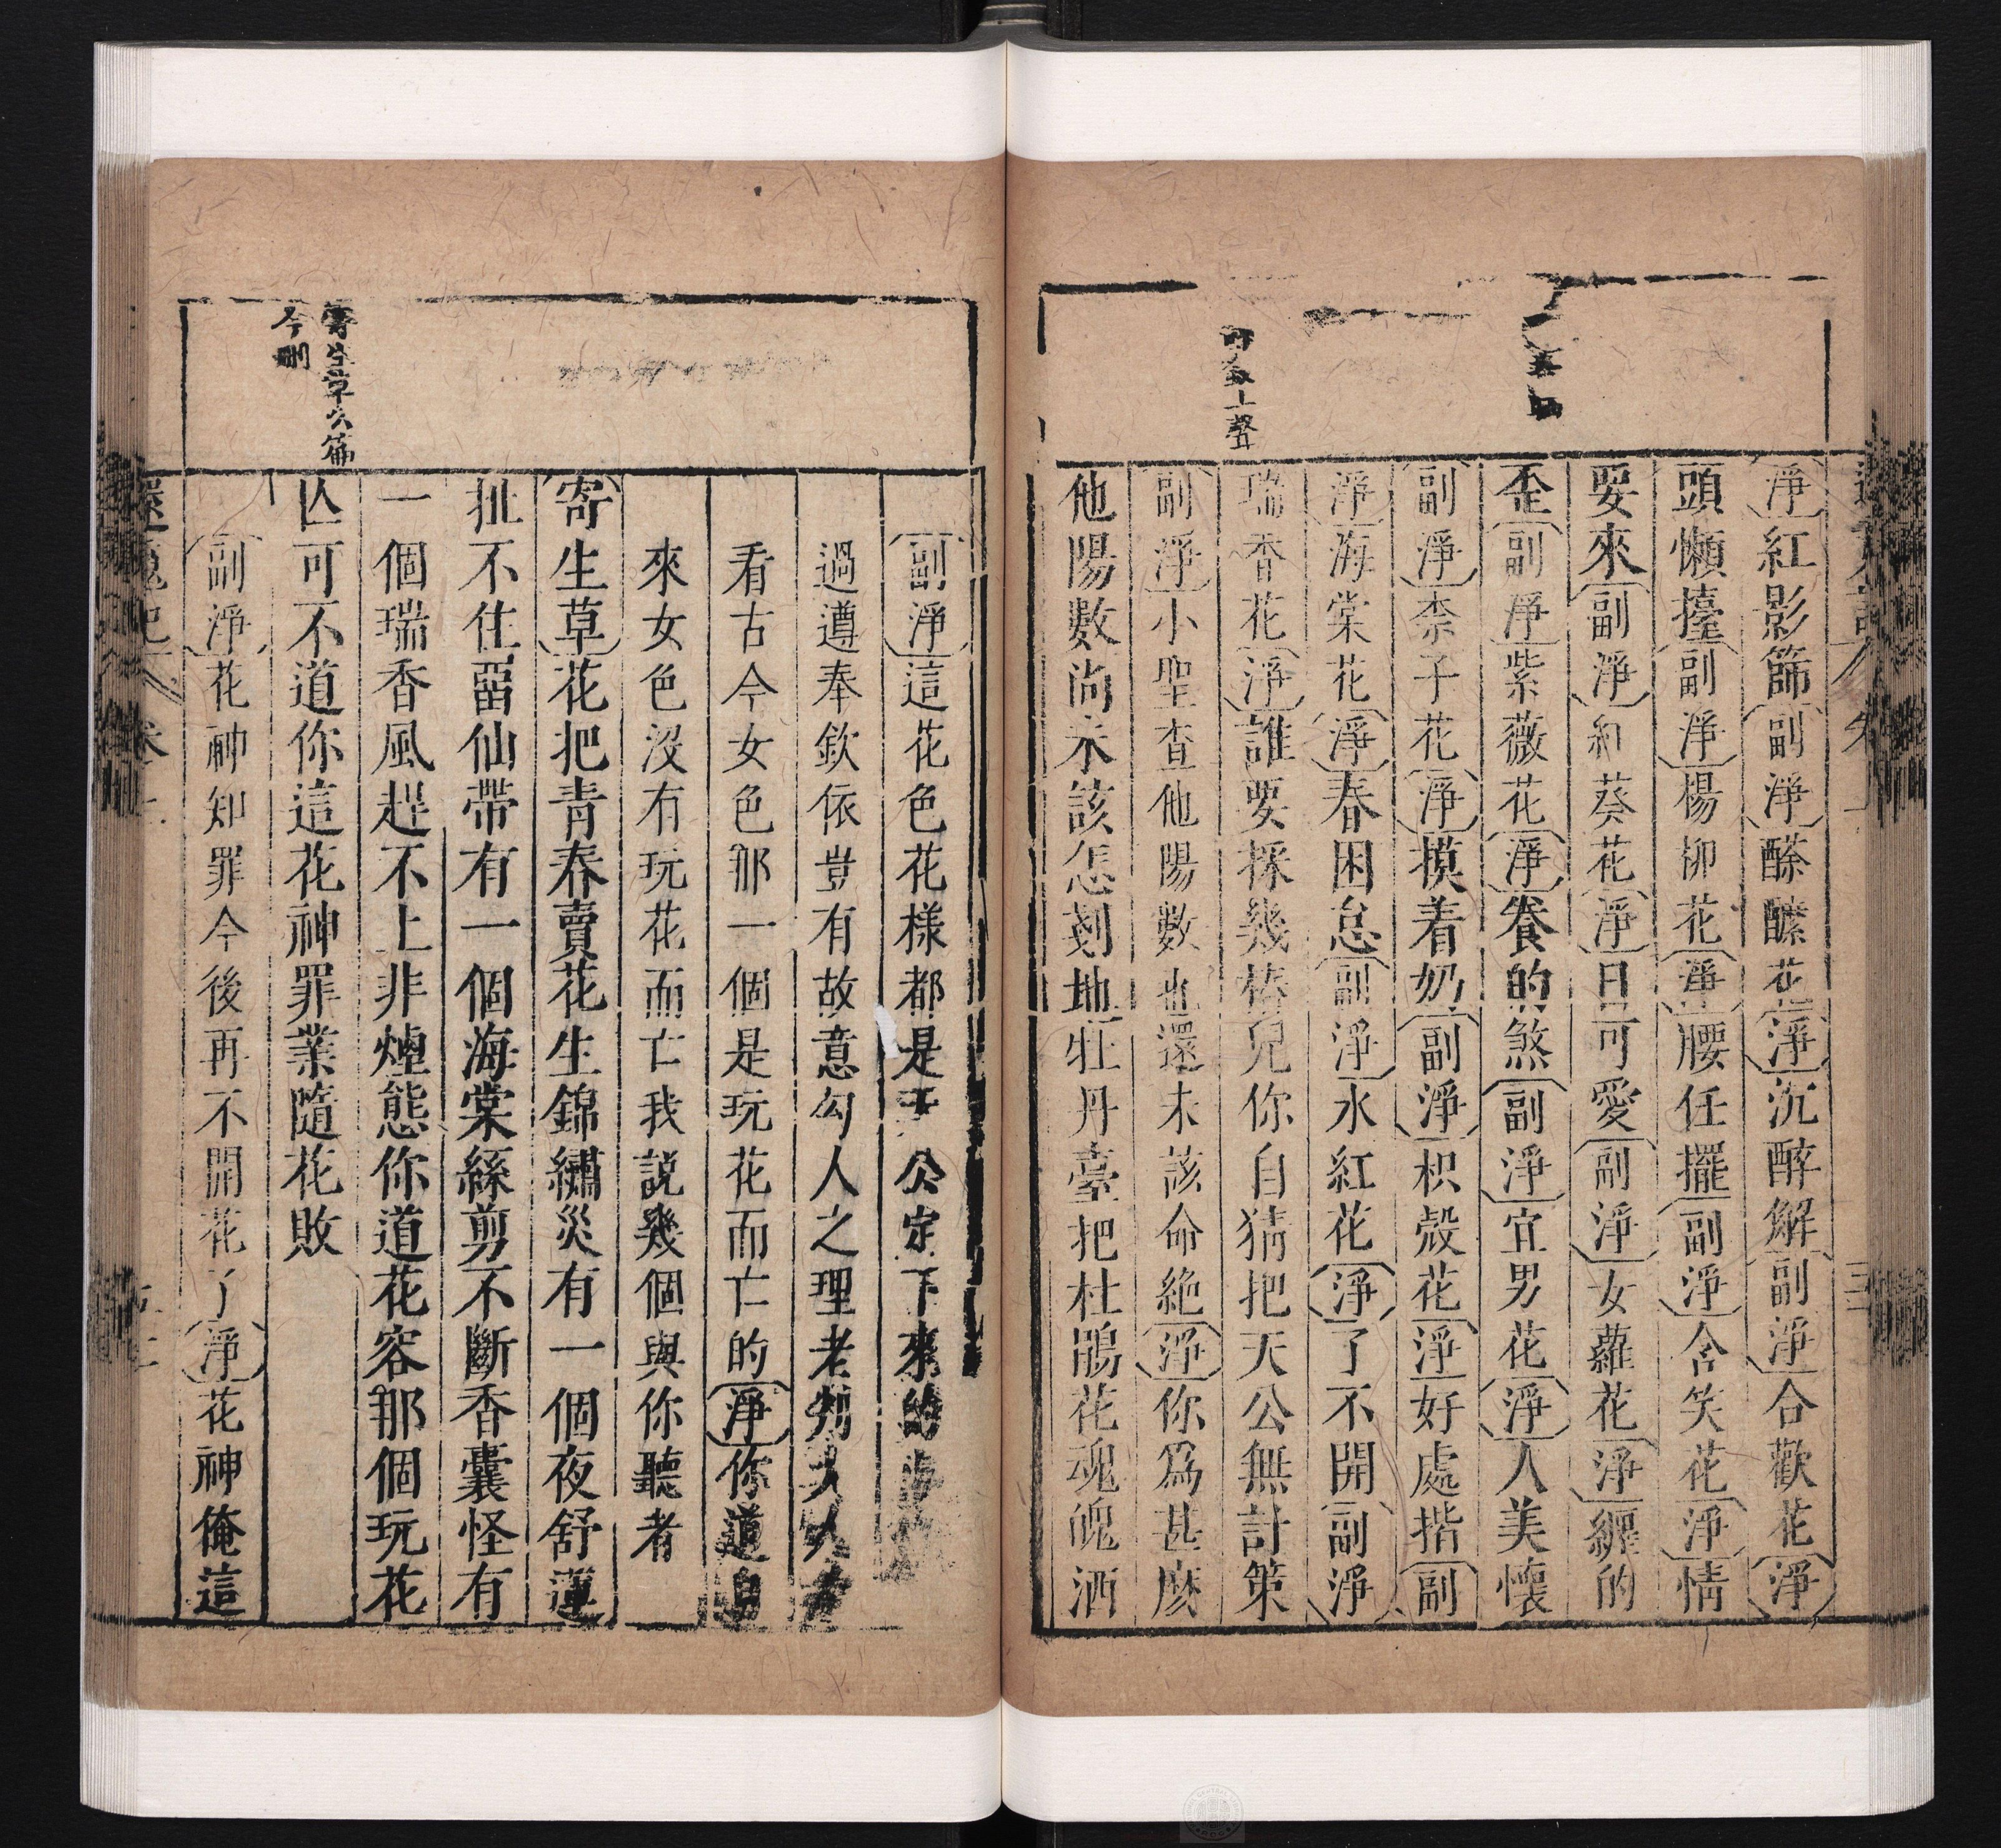 淨紅影篩副淨酴醾花淨沉醉解副淨合歡花淨
頭懶擡副淨楊柳花淨腰任擺副淨含笑花淨情
要來副淨紅葵花淨日可愛副淨女蘿花淨纒的
歪副淨紫薇花淨養的煞副淨宜男花淨人美懷
副淨柰子花淨摸着奶副淨枳殼花淨好處揩副
淨海棠花淨春困怠副淨水紅花淨了不開副淨
瑞香花淨誰要採幾樁兒你自猜把天公無計策
副淨小聖查他陽數也還未該命絶淨你爲甚麽
他陽數尚未該怎剗地牡丹臺把杜鵑花魂魄洒
上聲
副淨這花色花樣都是天公定下來的
過遵奉欽依豈有故意勾人之理老判大人
看古今女色那一個是玩花而亡的淨你道自
來女色沒有玩花而亡我説幾個與你聽者
寄生草花把青春賣花生錦繡災有一個夜舒蓮
扯不住畱仙帶有一個海棠絲剪不斷香囊怪有
一個瑞香風趕不上非煙態你道花容那個玩花
亾可不道你這花神罪業隨花敗
副淨花神知罪今後再不開花了淨花神俺這
寄生草六篇
今刪
還魂記 卷上